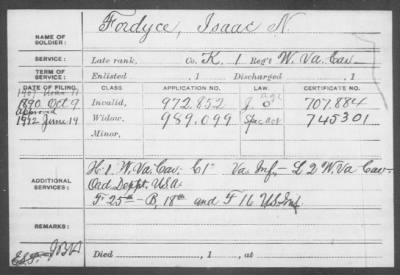 NAME OF SOLDIER: Fordyce, Isaac N.
SERVICE: Late rank, Co. K, 1 Reg't W. Va. Cav.
TERM OF SERVICE: Enlisted , 1 Discharged , 1
DATE OF FILING. CLASS. APPLICATION NO. LAW. CERTIFICATE NO.
1890 Oct 9 Invalid, 972.852 707.884
1912 June 14 Widow, 989.099 745301
Minor,
ADDITIONAL SERVICES: H. 1. W. Va. Cav. - C 1" Va. Inf. - L 2 W. Va Cav-
Ord Deppt. U.S.A.
F 25th - B, 18th and F 16 U.S. Inf.
REMARKS:
Died , 1 , at